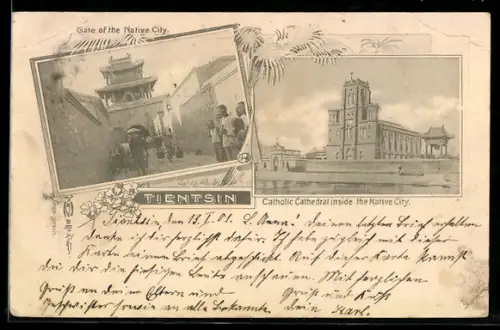 Gate of the Native City.
TIENTSIN
Catholic Cathedral inside the Native City.
Tientsin, den 18.I.01. L. Anna! Deinen letzten Brief erhalten
danke ich dir herzlichst dafür. Ich habe zugleich mit dieser
Karte einen Brief abgeschickt. Auf dieser Karte kannst
du dir die hiesigen Leute anschauen. Mit herzlichen
Gruß an deine Eltern und Gruß und Kuß
Geschwister sowie an alle Bekannte. Dein Karl.